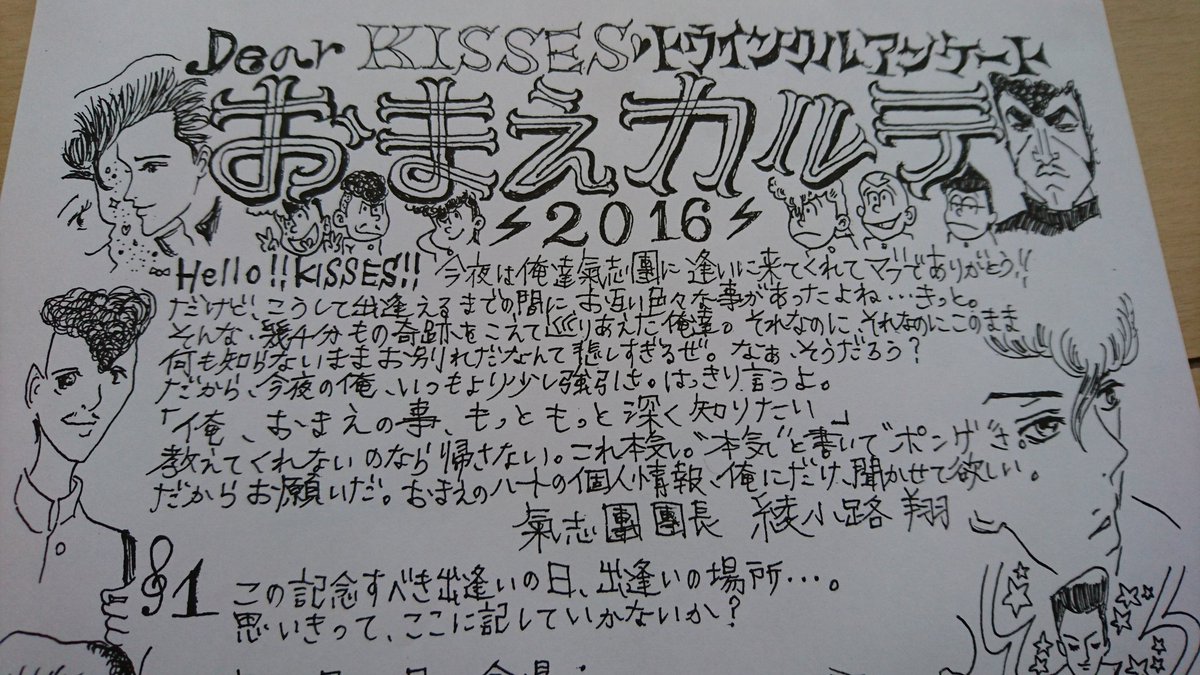 Dear KISSES トゥインクルアンケート
おまえカルテ
2016
Hello!! KISSES!! 今夜は俺達氣志團に逢いに来てくれてマブでありがとう!!
だけど、こうして出逢えるまでの間にお互い色々な事があったよね…きっと。
そんな、幾千分もの奇跡をこえて巡りあえた俺達。それなのに、それなのにこのまま
何も知らないままお別れだなんて悲しすぎるぜ。なぁ、そうだろう?
だから、今夜の俺、いつもより少し強引さ。はっきり言うよ。
「俺、おまえの事、もっともっと深く知りたい」
教えてくれないのなら帰さない。これ本気。"本気"と書いて"ポンゲ"さ。
だからお願いだ。おまえのハートの個人情報、俺にだけ、聞かせて欲しい。
氣志團團長 綾小路 翔
1 この記念すべき出逢いの日、出逢いの場所…。
思いきって、ここに記していかないか?